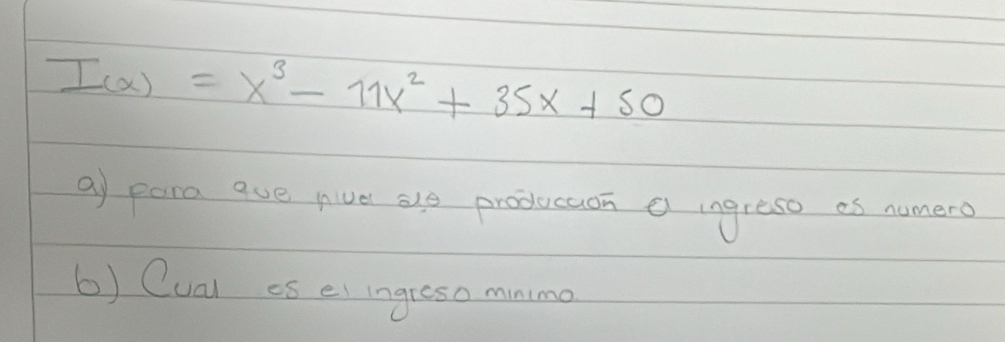 I(x) = x³ - 11x² + 35x + 50
a) para que nivel de producción el ingreso es numero
b) Cual es el ingreso minimo